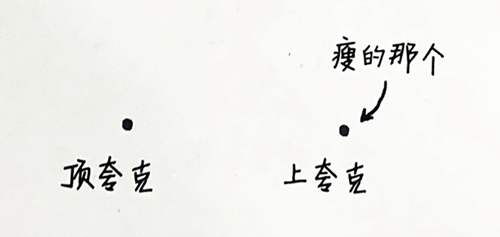 瘦的那个
顶夸克
上夸克